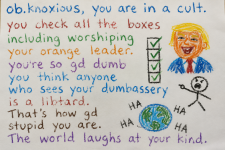 ob.knoxious, you are in a cult.
you check all the boxes
including worshiping
your orange leader.
you're so gd dumb
you think anyone
who sees your dumbassery
is a libtard.
That's how gd
stupid you are.
The world laughs at your kind.
HA
HA
HA
HA